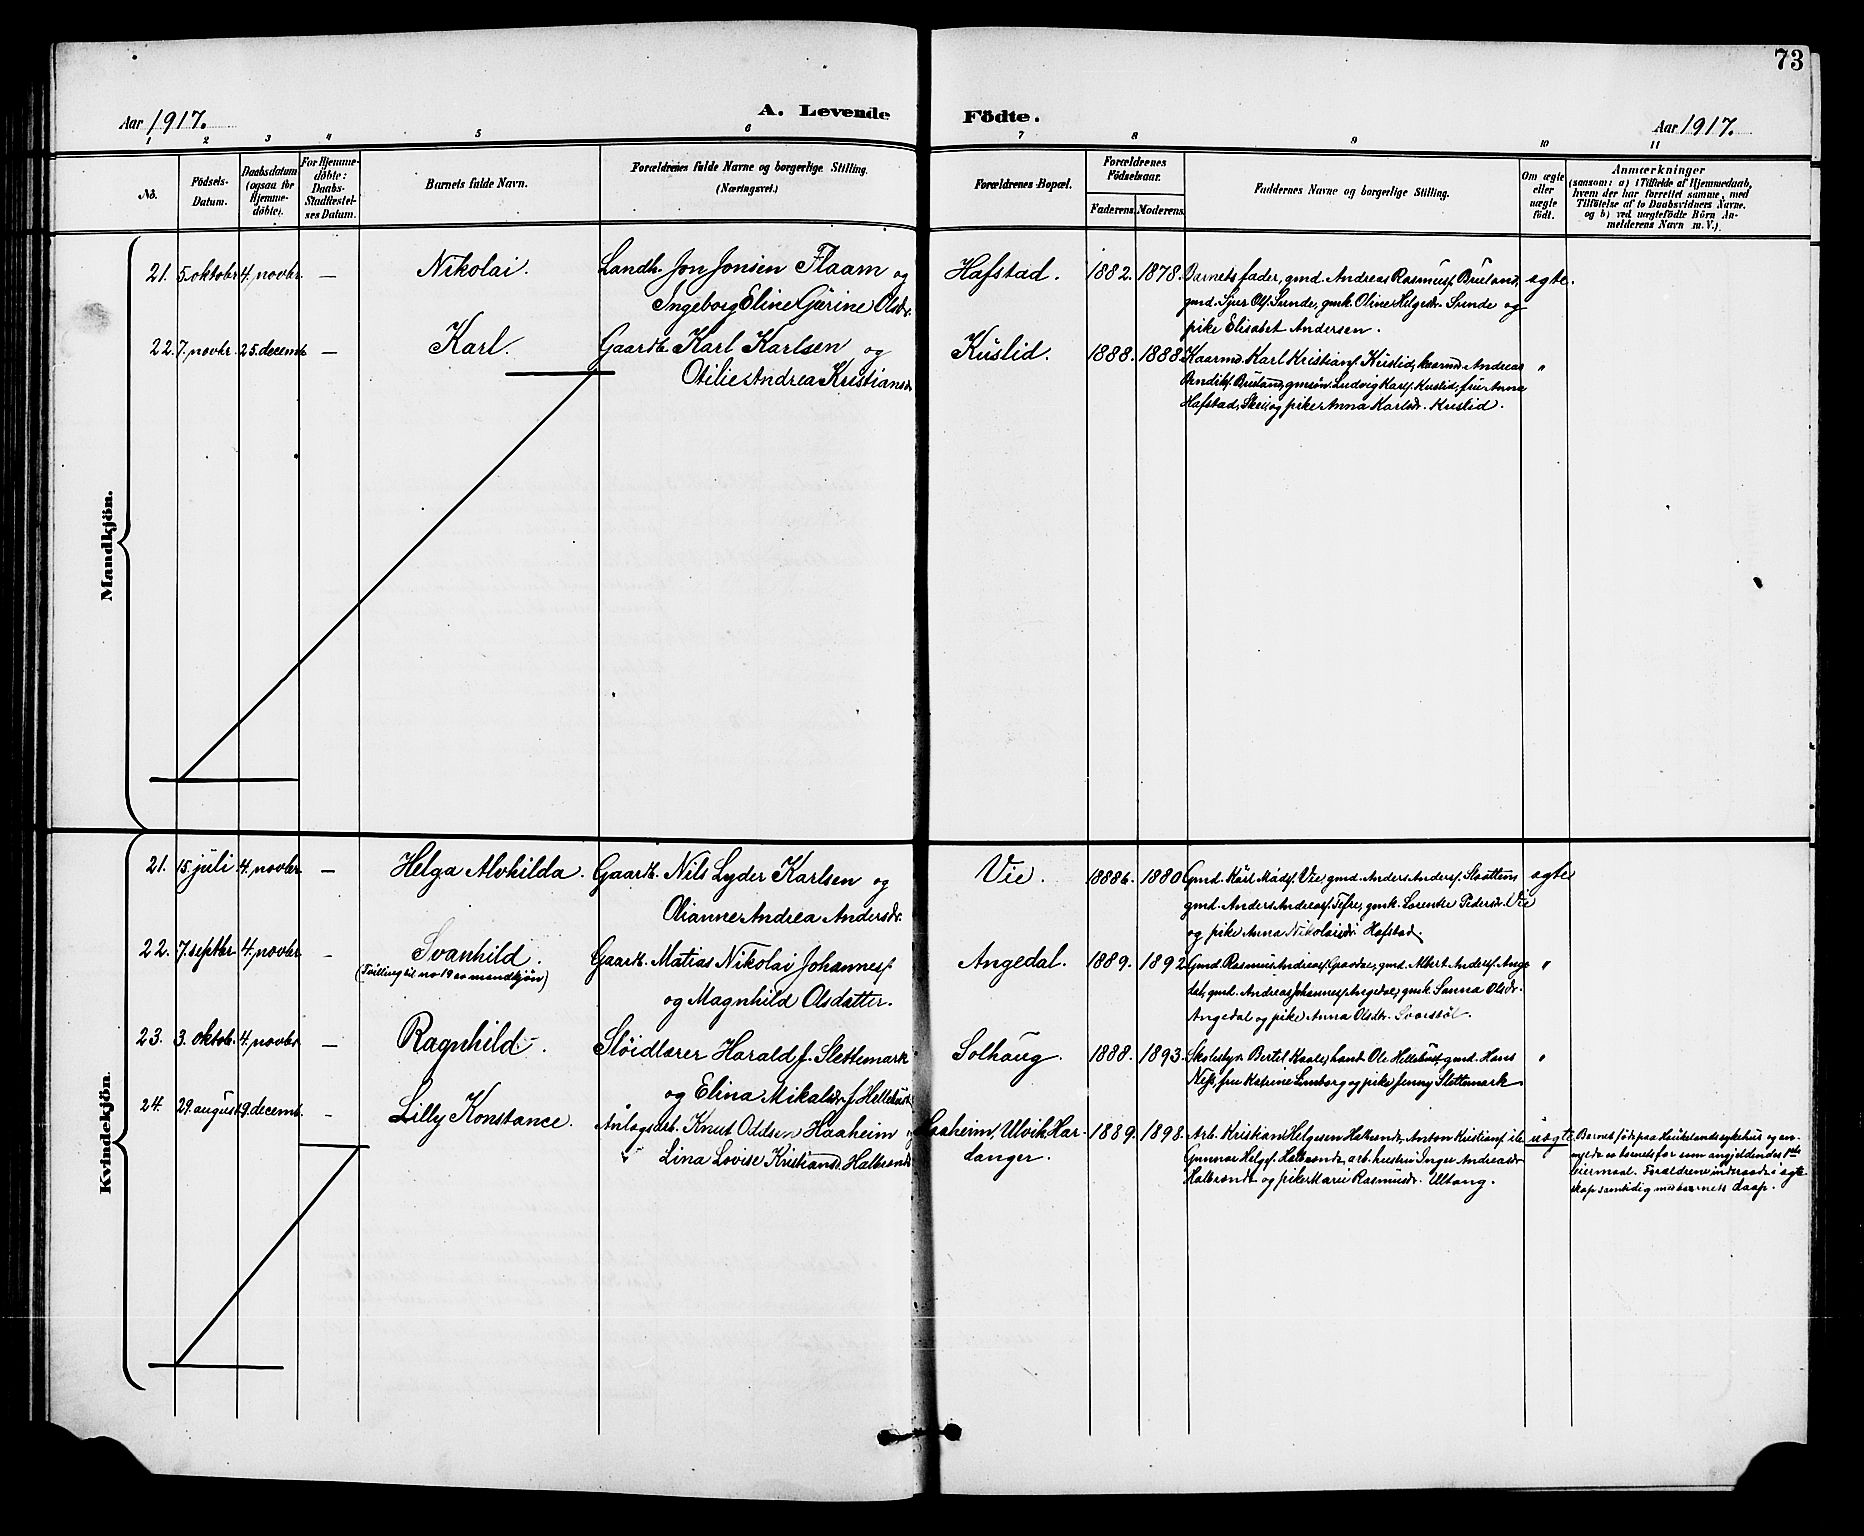 73
Aar 1917.
A. Levende Födte.
Aar 1917.
1 2 3 4 5 6 7 8 9 10 11
No.
Födsels-Datum.
Daabsdatum (ogsaa for Hjemmedöbte).
For Hjemmedöbte: Daabs-Stadfestelses Datum.
Barnets fulde Navn.
Forældrenes fulde Navne og borgerlige Stilling. (Næringsvei.)
Forældrenes Bopæl.
Forældrenes Födselsaar.
Faderens. Moderens.
Faddernes Navne og borgerlige Stilling.
Om ægte eller uægte födt.
Anmærkninger
(saasom: a) i Tilfælde af Hjemmedaab,
hvem der har forrettet samme, med
Tilföielse af to Daabsvidners Navne.
og b) ved uægtefödte Börn An-
melderens Navn m. V.).
Mandkjön.
21. 5. oktobr 4. novbr. — Nikolai. Landh. Jon Jonsen Flaam og
Ingeborg Eline Gjörine Olsdr.
Hafstad. 1882. 1878. Barnets fader, gmd. Andreas Rasmusf. Bruland, ægte.
gmd. Sjur Olf. Sunde, gmk. Oline Helgesdr. Sunde og
pike Elisabet Andersen.
22. 7. novbr. 25. decemb. — Karl. Gaardb. Karl Karlsen og
Otilie Andrea Kristiansdr.
Kuslid. 1888. 1888. Kaarmd. Karl Kristianf. Kuslid, kaarmd. Andreas "
Bendiksf. Bruland, gmsön Ludvig Karlf. Kuslid, fru Anna
Hafstad, Skei, og pike Anna Karlsdr. Kuslid.
Kvindekjön.
21. 15. juli 4. novbr. — Helga Alvhilda. Gaardb. Nils Lyder Karlsen og
Olianne Andrea Andersdr.
Vie. 18886. 1880. Gmd. Karl Madsf. Vie, gmd. Anders Andersf. Slaatten ægte
gmd. Anders Andreasf. Tefre, gmk. Lorentse Pedersdr. Vie
og pike Anna Nikolaisdr. Hafstad.
22. 7. septbr. 4. novbr. — Svanhild. Gaardb. Matias Nikolai Johannesf.
(Tvilling til no 19 av mandkjön)
og Magnhild Olsdatter.
Angedal. 1889. 1892. Gmd. Rasmus Andreasf. Govdal, gmd. Albert Andersf. Ange- "
dal, gmd. Andreas Johannesf. Angedal, gmk. Sanna Olsdr.
Angedal og pike Anna Olsdr. Svorstöl.
23. 3. oktob. 4. novbr. — Ragnhild. Slöidlærer Harald f. Slettemark
og Elina Mikalsdr. f. Hellebust
Solhaug. 1888. 1893. Skolestyr. Bertel Kaale, hand. Ole Hellebust, gmd. Hans "
Ness, fru Katrine Lemborg og pike Jenny Slettemark
24. 29. august 9. decemb. — Lilly Konstance. Anlægsarb. Knut Oddsen Haaheim og
Lina Lovise Kristiansdr. Halbrendt
Haaheim, Ulvik, Har-
danger.
1889. 1898. Arb. Kristian Helgesen Halbrendt, Anton Kristianf. ib.
Gunnar Helgef. Halbrendt, arb. hustru Inger Andreasdr.
Halbrendt og pike Marie Rasmusdr. Ultang.
uægte Barnet född paa Haukelands sykehus og an-
meldt av barnets far som angjeldendes 1ste
leiermaal. Forældrene indtraadte i ægte
skap samtidig med barnets daap.